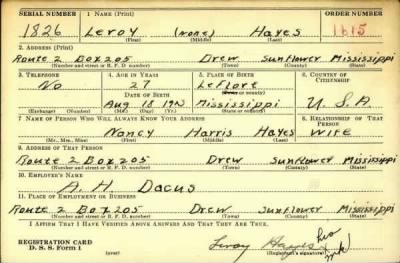 SERIAL NUMBER 1. NAME (Print) ORDER NUMBER
1826 Leroy (none) Hayes 1615
(First) (Middle) (Last)
2. ADDRESS (Print)
Route 2 Box 205 Drew Sunflower Mississippi
(Number and street or R. F. D. number) (Town) (County) (State)
3. TELEPHONE 4. AGE IN YEARS 5. PLACE OF BIRTH 6. COUNTRY OF CITIZENSHIP
No 27 Leflore
DATE OF BIRTH (Town or county)
Aug 18 Mississippi U. S. A.
(Exchange) (Number) (Mo.) (Day) (Yr.) (State or country)
7. NAME OF PERSON WHO WILL ALWAYS KNOW YOUR ADDRESS 8. RELATIONSHIP OF THAT PERSON
Nancy Harris Hayes Wife
(Mr., Mrs., Miss) (First) (Middle) (Last)
9. ADDRESS OF THAT PERSON
Route 2 Box 205 Drew Sunflower Mississippi
(Number and street or R. F. D. number) (Town) (County) (State)
10. EMPLOYER'S NAME
A. H. Dacus
11. PLACE OF EMPLOYMENT OR BUSINESS
Route 2 Box 205 Drew Sunflower Mississippi
(Number and street or R. F. D. number) (Town) (County) (State)
I AFFIRM THAT I HAVE VERIFIED ABOVE ANSWERS AND THAT THEY ARE TRUE.
REGISTRATION CARD Leroy Hayes his
D. S. S. Form 1 (over) (Registrant's signature) mk